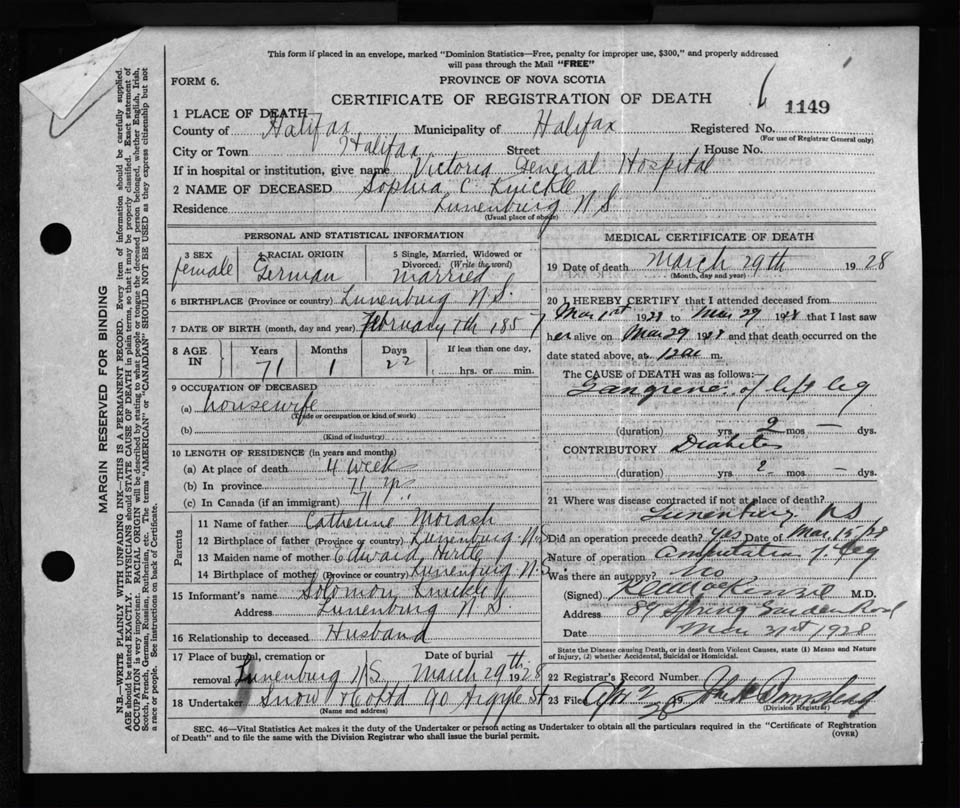 This form if placed in an envelope, marked "Dominion Statistics—Free, penalty for improper use, $300," and properly addressed
will pass through the Mail "FREE"
FORM 6.
PROVINCE OF NOVA SCOTIA
CERTIFICATE OF REGISTRATION OF DEATH
1149
1 PLACE OF DEATH
County of Halifax Municipality of Halifax Registered No.
(For use of Registrar General only)
City or Town Halifax Street House No.
If in hospital or institution, give name Victoria General Hospital
2 NAME OF DECEASED Sophia C. Knickle
Residence Lunenburg N S
(Usual place of abode)
PERSONAL AND STATISTICAL INFORMATION
3 SEX female
4 RACIAL ORIGIN German
5 Single, Married, Widowed or Divorced. (Write the word) Married
6 BIRTHPLACE (Province or country) Lunenburg N.S.
7 DATE OF BIRTH (month, day and year) February 7th 1857
8 AGE IN Years 71 Months 1 Days 22 If less than one day, hrs. or min.
9 OCCUPATION OF DECEASED
(a) housewife
(Trade or occupation or kind of work)
(b)
(Kind of industry)
10 LENGTH OF RESIDENCE (in years and months)
(a) At place of death 4 week
(b) In province 71 yrs
(c) In Canada (if an immigrant) 71
Parents
11 Name of father Catherine Morash
12 Birthplace of father (Province or country) Lunenburg N S
13 Maiden name of mother Edward Hirtle
14 Birthplace of mother (Province or country) Lunenburg N.S.
15 Informant's name Solomon Knickle
Address Lunenburg N.S.
16 Relationship to deceased Husband
17 Place of burial, cremation or removal Lunenburg N S Date of burial March 29th 1928
18 Undertaker Snow 90 Argyle St
(Name and address)
MEDICAL CERTIFICATE OF DEATH
19 Date of death March 29th 1928
(Month, day and year)
20 I HEREBY CERTIFY that I attended deceased from
Mar 1st 1928 to Mar 29 1928 that I last saw
her alive on Mar 29 1928 and that death occurred on the
date stated above, at m.
The CAUSE OF DEATH was as follows:
Gangrene of left leg
(duration) yrs. mos — dys.
CONTRIBUTORY Diabetes
(duration) yrs. ? mos. — dys.
21 Where was disease contracted if not at place of death?
Lunenburg N S
Did an operation precede death? yes Date of Mar 15/28
Nature of operation Amputation of leg
Was there an autopsy? No
(Signed) MacKenzie M.D.
Address 89 Spring Garden Road
Date Mar 31st 1928
State the Disease causing Death, or in Death from Violent Causes, state (1) Means and Nature
of Injury, (2) whether Accidental, Suicidal or Homicidal.
22 Registrar's Record Number
23 Filed Apr 2 1928
(Division Registrar)
SEC. 46—Vital Statistics Act makes it the duty of the Undertaker or person acting as Undertaker to obtain all the particulars required in the "Certificate of Registration
of Death" and to file the same with the Division Registrar who shall issue the burial permit.
(OVER)
MARGIN RESERVED FOR BINDING
N.B.—WRITE PLAINLY WITH UNFADING INK—THIS IS A PERMANENT RECORD. Every item of information should be carefully supplied.
AGE should be stated EXACTLY. PHYSICIANS should STATE CAUSE OF DEATH in plain terms, so that it may be properly classified. Exact statement of
OCCUPATION is very important. RACIAL ORIGIN will be described by stating to what people or tongue the deceased person belonged, whether English, Irish,
Scotch, French, German, Russian, Ruthenian, etc. The terms "AMERICAN" or "CANADIAN" SHOULD NOT BE USED as they express citizenship but not
a race or people. See instructions on back of Certificate.